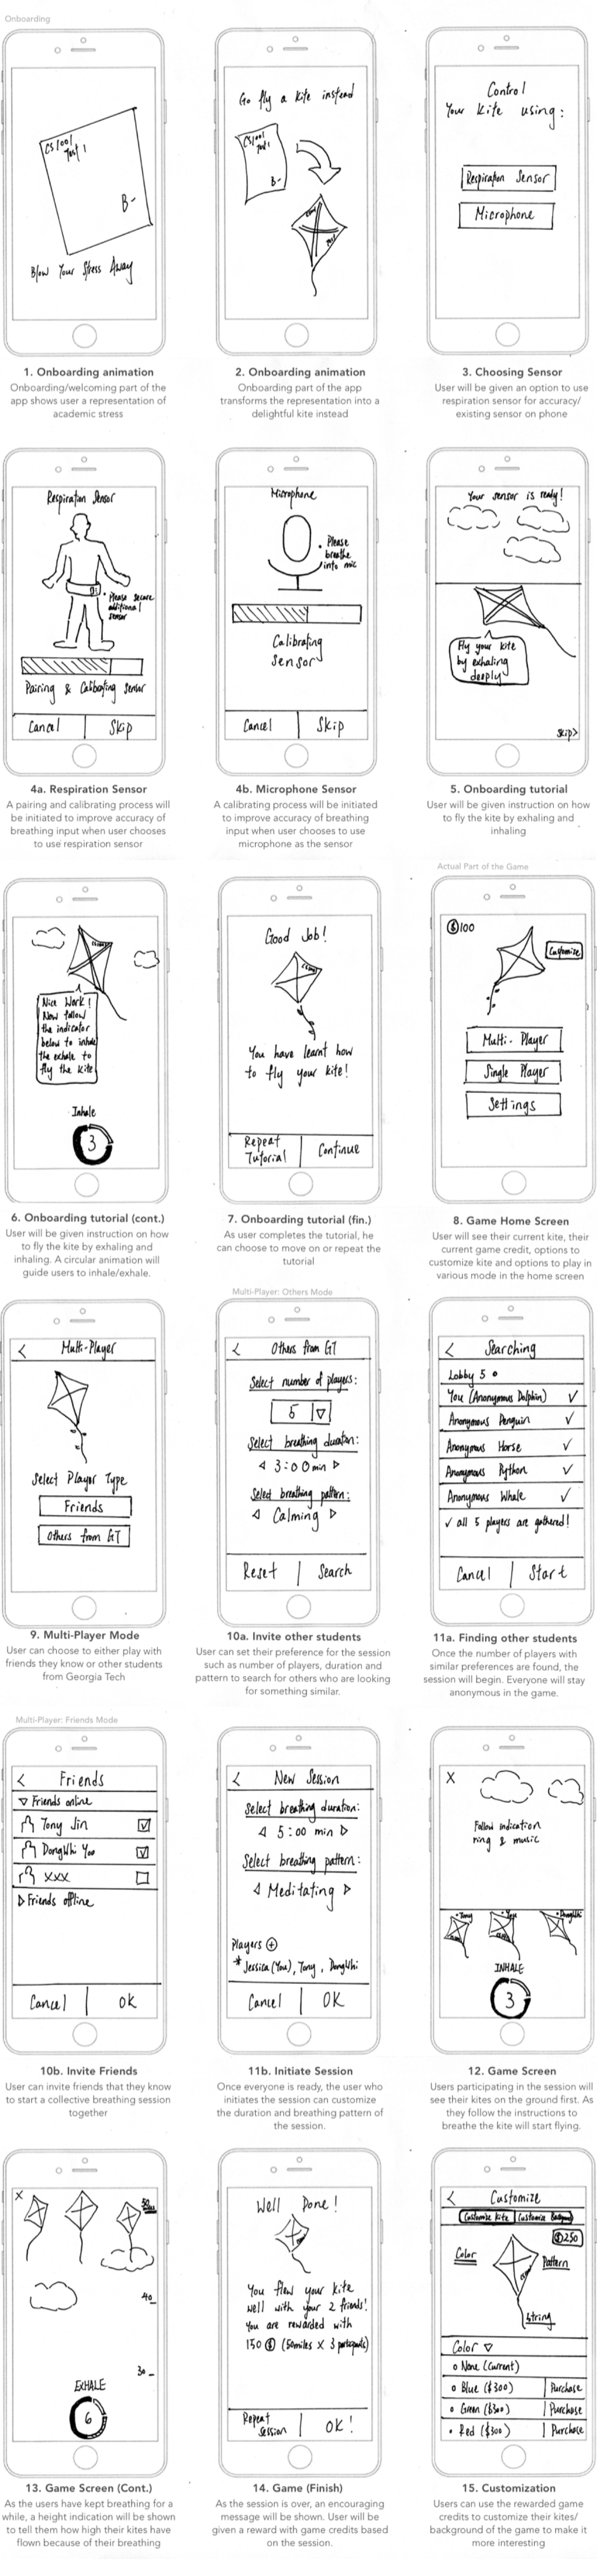 Onboarding
CS 1001
Test 1
B-
Blow Your Stress Away
1. Onboarding animation
Onboarding/welcoming part of the
app shows user a representation of
academic stress
Go fly a kite instead
CS1001
Test 1
B-
2. Onboarding animation
Onboarding part of the app
transforms the representation into a
delightful kite instead
Control
Your Kite using:
Respiration Sensor
Microphone
3. Choosing Sensor
User will be given an option to use
respiration sensor for accuracy/
existing sensor on phone
Respiration Sensor
Please secure
additional
sensor
Pairing & Calibrating Sensor
Cancel
Skip
4a. Respiration Sensor
A pairing and calibrating process will
be initiated to improve accuracy of
breathing input when user chooses
to use respiration sensor
Microphone
Please
breathe
into mic
Calibrating
Sensor
Cancel
Skip
4b. Microphone Sensor
A calibrating process will be initiated
to improve accuracy of breathing
input when user chooses to use
microphone as the sensor
Your sensor is ready!
Fly your kite
by exhaling
deeply
Skip>
5. Onboarding tutorial
User will be given instruction on how
to fly the kite by exhaling and
inhaling
Nice Work!
Now follow
the indicator
below to inhale
the exhale to
fly the kite
Inhale
3
6. Onboarding tutorial (cont.)
User will be given instruction on how
to fly the kite by exhaling and
inhaling. A circular animation will
guide users to inhale/exhale.
Good Job!
You have learnt how
to fly your kite!
Repeat
Tutorial
Continue
7. Onboarding tutorial (fin.)
As user completes the tutorial, he
can choose to move on or repeat the
tutorial
Actual Part of the Game
$100
Customize
Multi-Player
Single Player
Settings
8. Game Home Screen
User will see their current kite, their
current game credit, options to
customize kite and options to play in
various mode in the home screen
< Multi-Player
Select Player Type
Friends
Others from GT
9. Multi-Player Mode
User can choose to either play with
friends they know or other students
from Georgia Tech
Multi-Player: Others Mode
< Others from GT
Select number of players:
5
Select breathing duration:
3:00 min
Select breathing pattern:
Calming
Reset
Search
10a. Invite other students
User can set their preference for the session
such as number of players, duration and
pattern to search for others who are looking
for something similar.
< Searching
Lobby 5
You (Anonymous Dolphin) ✓
Anonymous Penguin ✓
Anonymous Horse ✓
Anonymous Python ✓
Anonymous Whale ✓
✓ all 5 players are gathered!
Cancel
Start
11a. Finding other students
Once the number of players with
similar preferences are found, the
session will begin. Everyone will stay
anonymous in the game.
Multi-Player: Friends Mode
< Friends
Friends online
Tony Jin
DongWhi Yoo
xxx
Friends offline
Cancel
OK
10b. Invite Friends
User can invite friends that they know
to start a collective breathing session
together
< New Session
Select breathing duration:
5:00 min
Select breathing pattern:
Meditating
Players
* Jessica (You), Tony, DongWhi
Cancel
OK
11b. Initiate Session
Once everyone is ready, the user who
initiates the session can customize
the duration and breathing pattern of
the session.
X
Follow indication
ring & music
Tony
You
DongWhi
INHALE
3
12. Game Screen
Users participating in the session will
see their kites on the ground first. As
they follow the instructions to
breathe the kite will start flying.
X
50
40
30
EXHALE
6
13. Game Screen (Cont.)
As the users have kept breathing for a
while, a height indication will be shown
to tell them how high their kites have
flown because of their breathing
Well Done!
You flew your kite
well with your 2 friends!
You are rewarded with
150 $ (50miles X 3 participants)
Repeat
Session
OK!
14. Game (Finish)
As the session is over, an encouraging
message will be shown. User will be
given a reward with game credits based
on the session.
< Customize
Customize Kite
Customize Background
$250
Color
Pattern
String
Color
None (Current)
Blue ($300) Purchase
Green ($300) Purchase
Red ($300) Purchase
15. Customization
Users can use the rewarded game
credits to customize their kites/
background of the game to make it
more interesting